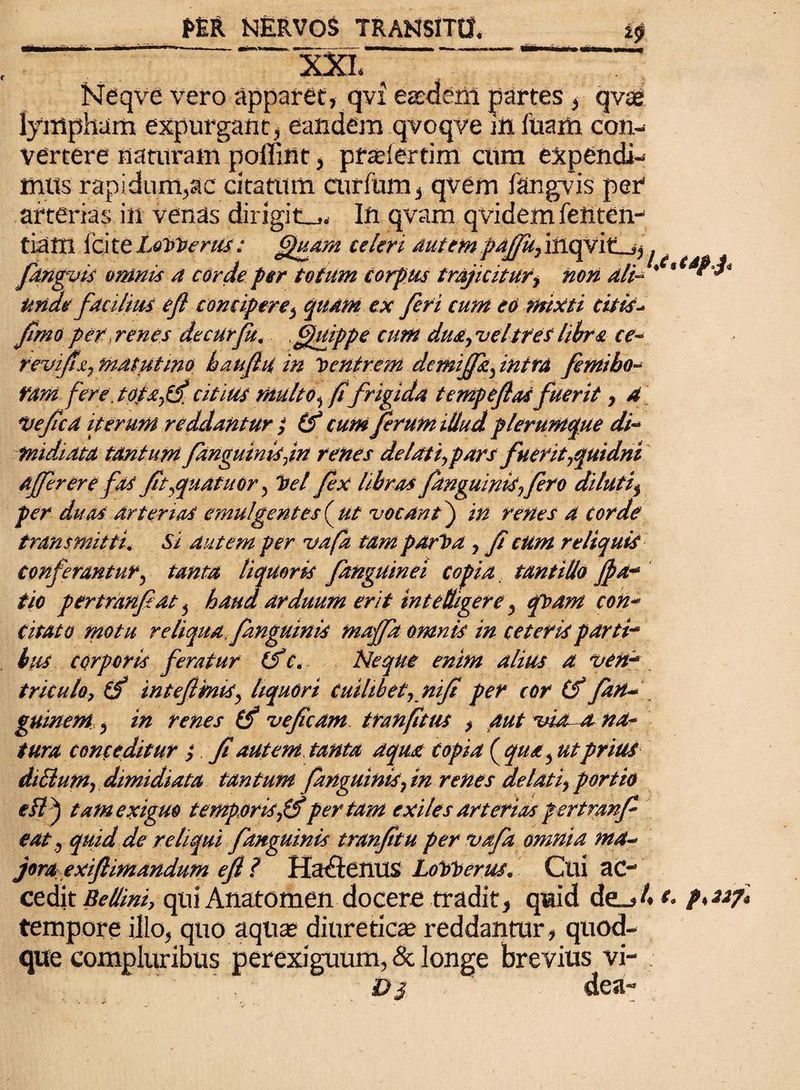 PER NERVOS TRANSITU. 29
XXI.
Neqve vero apparet, qvi eædem partes, qvæ
lympham expurgant, eandem qvoqve in suam con-
vertere naturam possint, præsertim cum expendi-
mus rapidum, ac citatum cursum, qvem sangvis per
arterias in venas dirigit. In qvam qvidem senten-
tiam scite Lovverus: Quam celeri autem passu, inqvit,
sangvis omnis a corde per totum corpus trajicitur, non ali- l. c. cap. 3.
unde facilius est concipere, quam ex seri cum eo mixti citis-
simo per renes decursu. Quippe cum duæ, vel tres libræ ce-
revisiæ, matutino haustu in ventrem demissæ, intra semiho-
ram fere totæ, & citius multo, si frigida tempestas fuerit, a
vesica iterum reddantur; & cum serum illud plerumque di-
midiata tantum sanguinis, in renes delati, pars fuerit, quidni
asserere fas sit, quatuor, vel sex libras sanguinis, sero diluti,
per duas arterias emulgentes (ut vocant) in renes a corde
transmitti. Si autem per vasa tam parva, si cum reliquis
conferantur, tanta liquoris sanguinei copia tantillo spa-
tio pertranseat, haud arduum erit intelligere, qvam con-
citato motu reliqua sanguinis massa omnis in ceteris parti-
bus corporis feratur &c. Neque enim alius a ven-
triculo, & intestinis, liquori cuilibet, nisi per cor & san-
guinem, in renes & vesicam transitus, aut via a na-
tura conceditur; si autem tanta aquæ copia (quæ, ut prius
dictum, dimidiata tantum sanguinis, in renes delati, portio
est) tam exiguo temporis, & per tam exiles arterias pertrans-
eat, quid de reliqui sanguinis transitu per vasa omnia ma-
jora existimandum est? Hactenus Lovverus. Cui ac-
cedit Bellini, qui Anatomen docere tradit, quid de l. c. p. 227.
tempore illo, quo aquæ diureticæ reddantur, quod-
que compluribus perexiguum, & longe brevius vi-
D 3 dea-